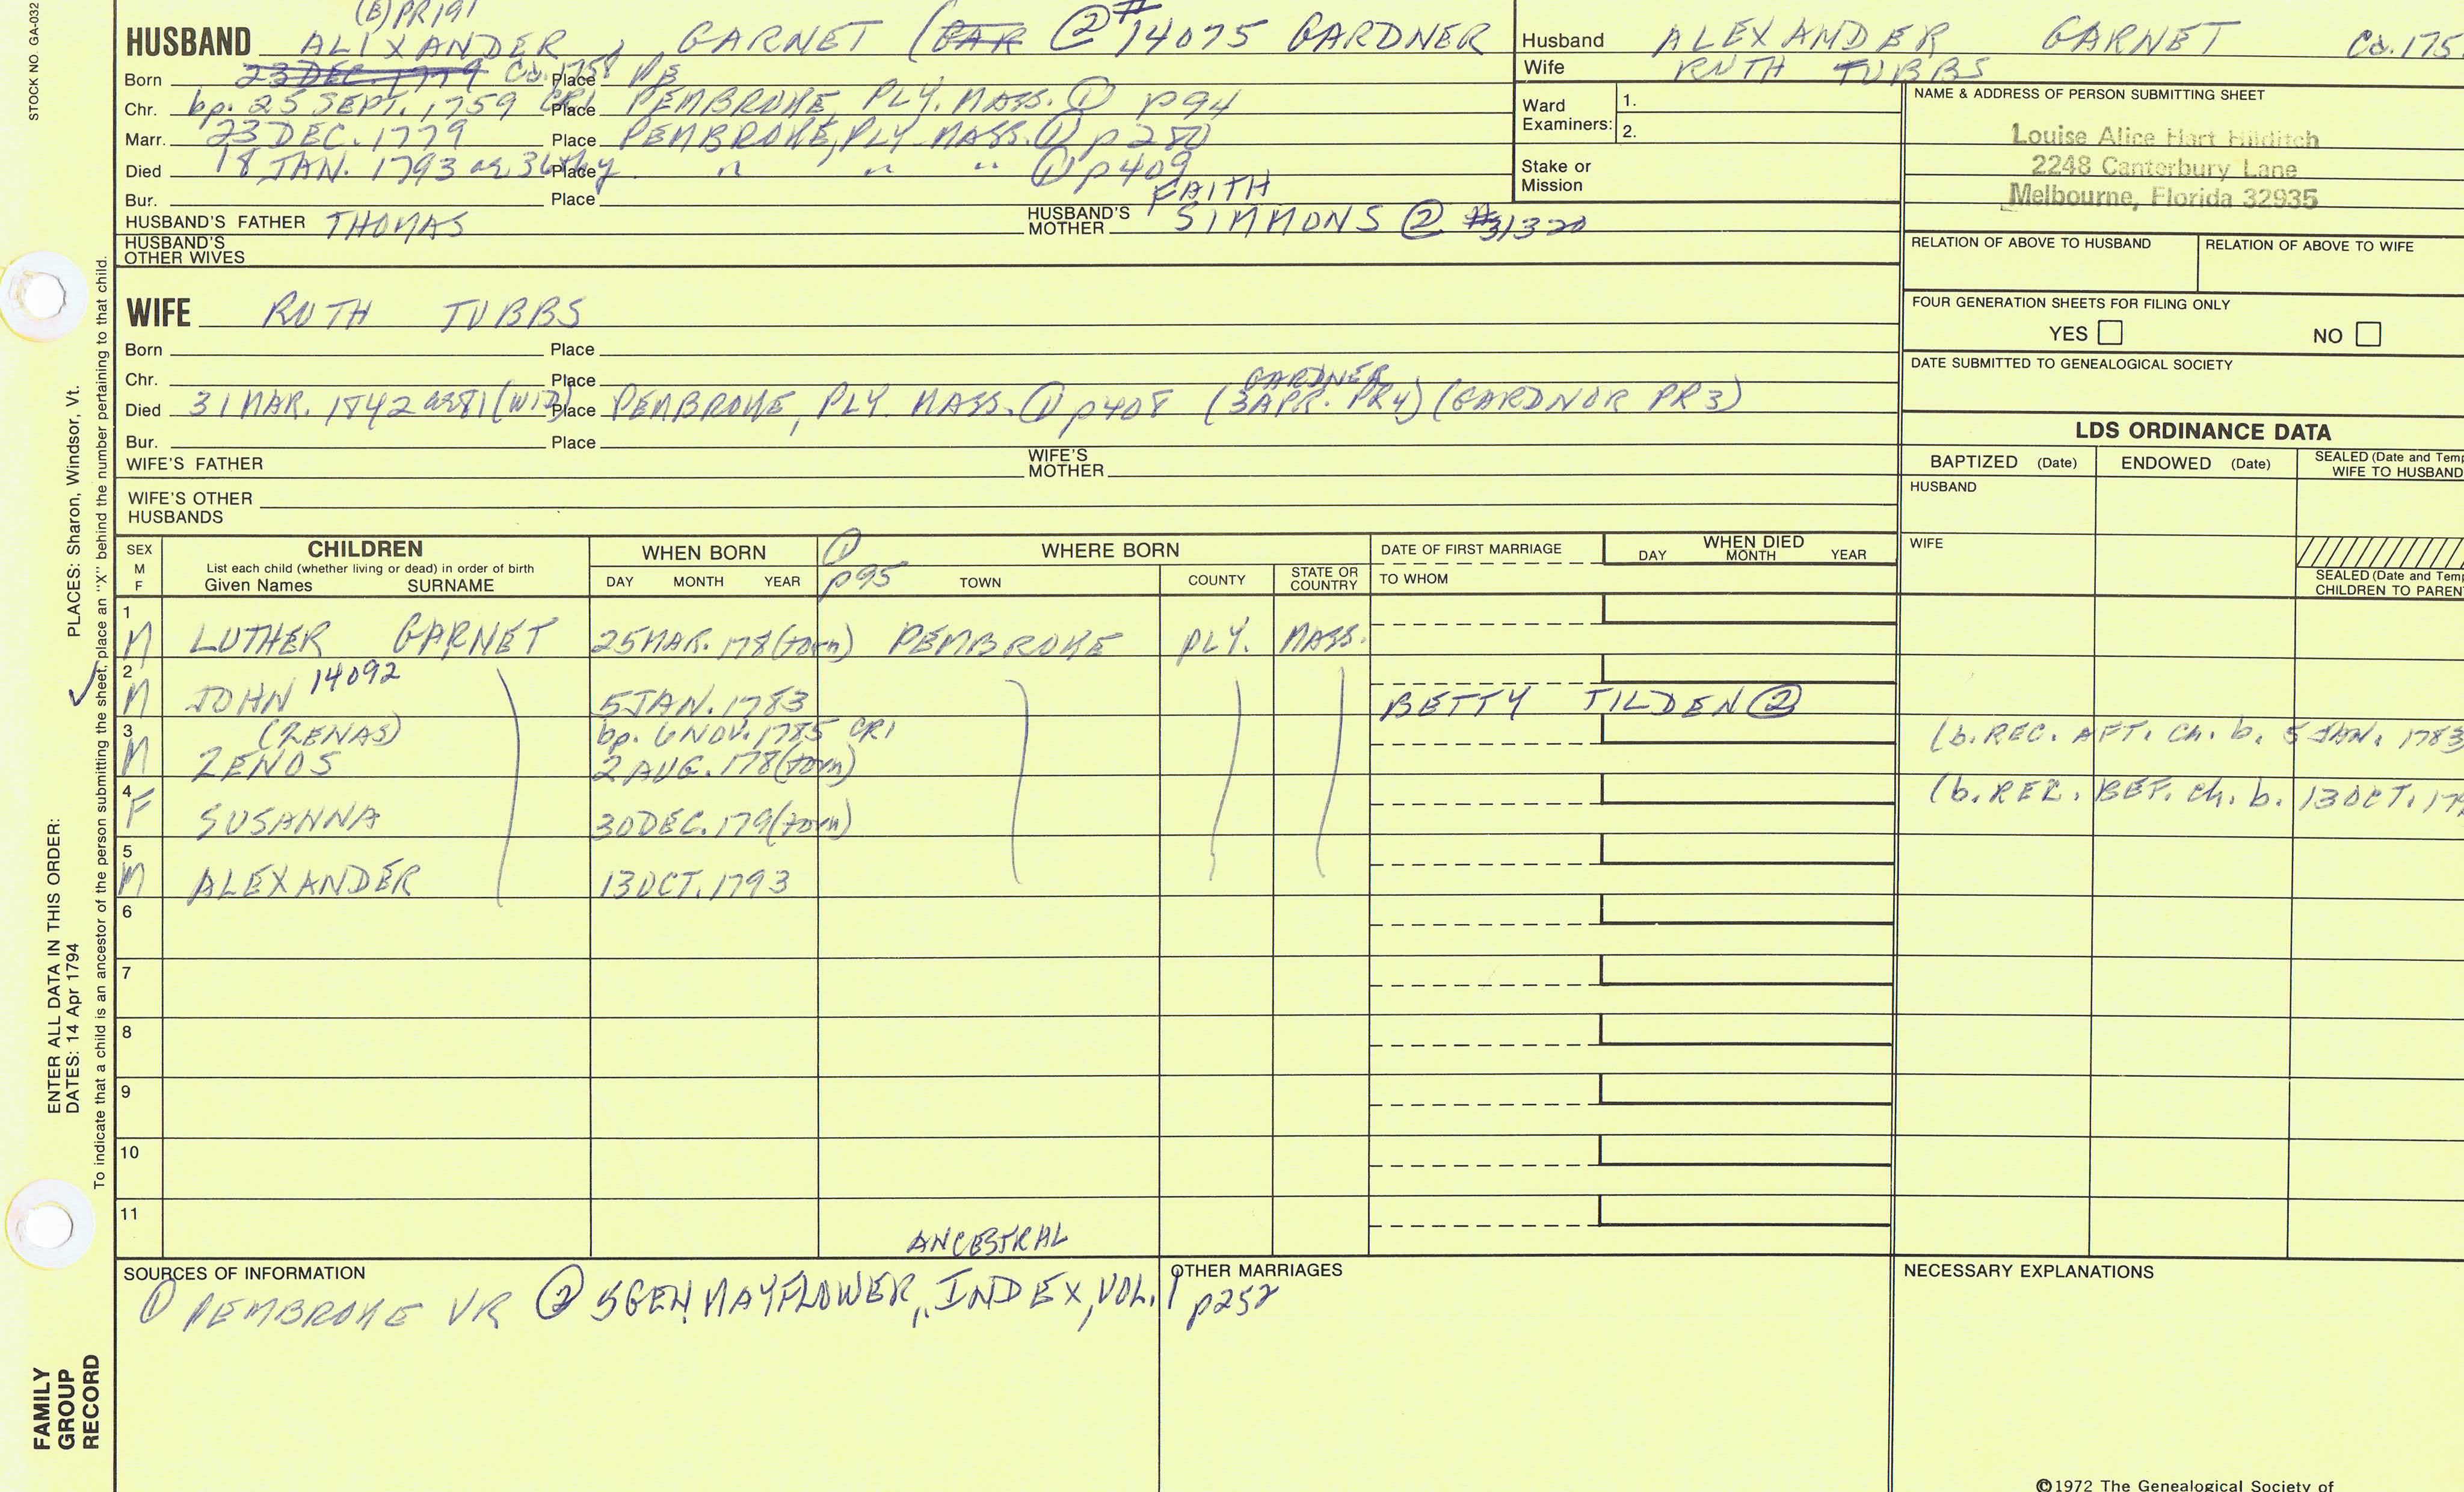 STOCK NO. GA-032
(B) PR191
HUSBAND ALIXANDER, GARNET (GAR @2 #14075 GARDNER
Born 23 DEC. 1779 Ca. 1758 Place PB
Chr. bp. 25 SEPT. 1759 CR1 Place PEMBROKE, PLY. MASS. ① p94
Marr. 23 DEC. 1779 Place PEMBROKE, PLY MASS. ① p280
Died 18 JAN. 1793 ae 36thy Place " " " ① p409
Bur. Place
HUSBAND'S FATHER THOMAS HUSBAND'S MOTHER FAITH SIMMONS ② #31320
HUSBAND'S OTHER WIVES
Husband ALEXANDER GARNET Ca. 175
Wife RUTH TUBBS
Ward Examiners: 1.
2.
Stake or Mission
NAME & ADDRESS OF PERSON SUBMITTING SHEET
Louise Alice Hart Hilditch
2248 Canterbury Lane
Melbourne, Florida 32935
RELATION OF ABOVE TO HUSBAND RELATION OF ABOVE TO WIFE
FOUR GENERATION SHEETS FOR FILING ONLY
YES NO
DATE SUBMITTED TO GENEALOGICAL SOCIETY
WIFE RUTH TUBBS
Born Place
Chr. Place
GARDNER
Died 31 MAR. 1842 ae 81 (WID) Place PEMBROKE, PLY. MASS. ① p408 (3 APR. PR4) (GARDNOR PR3)
Bur. Place
WIFE'S FATHER WIFE'S MOTHER
WIFE'S OTHER HUSBANDS
LDS ORDINANCE DATA
BAPTIZED (Date) ENDOWED (Date) SEALED (Date and Temp WIFE TO HUSBAND
HUSBAND
WIFE
SEALED (Date and Temp CHILDREN TO PAREN
SEX M F
CHILDREN
List each child (whether living or dead) in order of birth
Given Names SURNAME
WHEN BORN
DAY MONTH YEAR
① p95
WHERE BORN
TOWN COUNTY STATE OR COUNTRY
DATE OF FIRST MARRIAGE
TO WHOM
WHEN DIED
DAY MONTH YEAR
1 M LUTHER GARNET 25 MAR. 178(torn) PEMBROKE PLY. MASS.
2 M JOHN 14092 5 JAN. 1783 BETTY TILDEN ②
3 (ZENAS) bp. 6 NOV. 1785 CR1
M ZENOS 2 AUG. 178(torn) (b. REC. AFT. Ch. b. 5 JAN. 1783
4 F SUSANNA 30 DEC. 179(torn) (b. REC. BEF. Ch. b. 13 OCT. 179
5 M ALEXANDER 13 OCT. 1793
6
7
8
9
10
11
SOURCES OF INFORMATION
ANCESTRAL
① PEMBROKE VR ② 5 GEN. MAYFLOWER, INDEX, VOL. 1 p252
OTHER MARRIAGES
NECESSARY EXPLANATIONS
©1972 The Genealogical Society of
PLACES: Sharon, Windsor, Vt.
ENTER ALL DATA IN THIS ORDER:
DATES: 14 Apr 1794
To indicate that a child is an ancestor of the person submitting the sheet, place an "X" behind the number pertaining to that child.
FAMILY
GROUP
RECORD